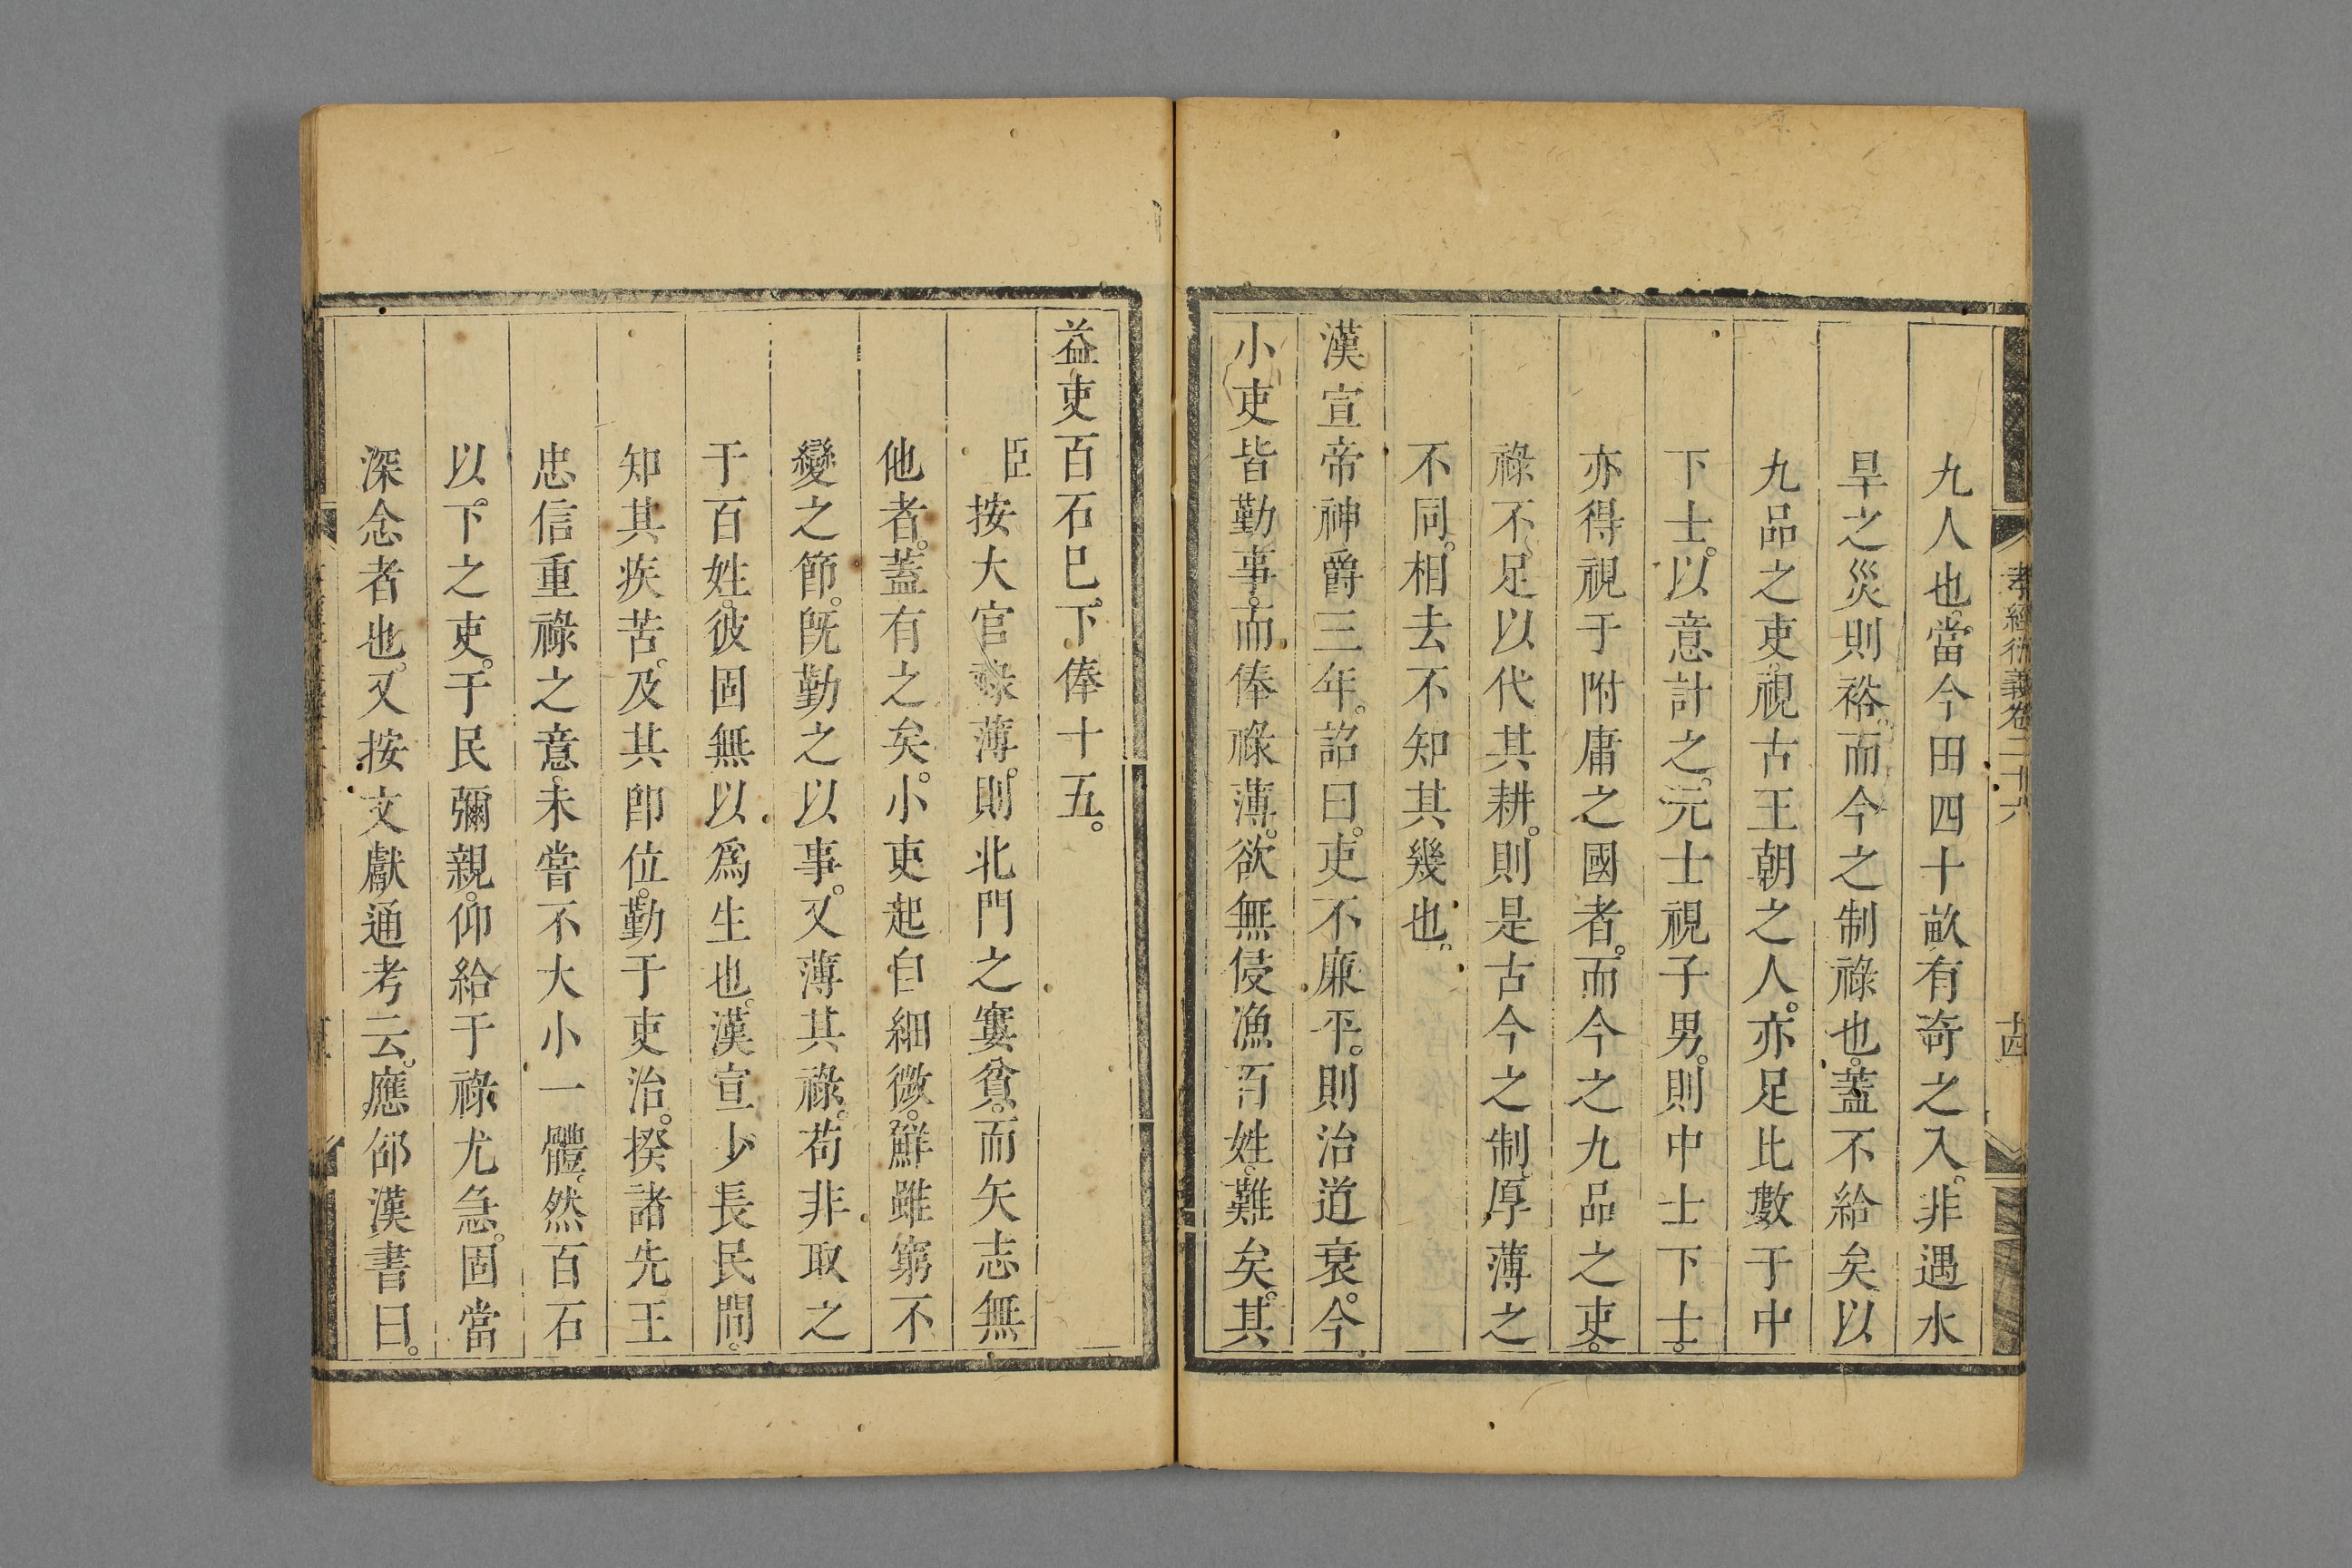 孝經衍義卷二十六
十四
九人也。當今田四十畝有奇之入。非遇水
旱之災則裕。而今之制祿也。蓋不給矣以
九品之吏。視古王朝之人。亦足比數于中
下士。以意計之。元士視子男。則中士下士。
亦得視于附庸之國者。而今之九品之吏。
祿不足以代其耕。則是古今之制。厚薄之
不同。相去不知其幾也。
漢宣帝神爵三年。詔曰。吏不廉平。則治道衰。今
小吏皆勤事。而俸祿薄。欲無侵漁百姓。難矣。其
益吏百石巳。下俸十五。
臣按大官祿薄。則北門之窶貧。而矢志無
他者。蓋有之矣。小吏起自細微。鮮雖窮不
變之節。旣勤之以事。又薄其祿。苟非取之
于百姓。彼固無以爲生也。漢宣少長民間。
知其疾苦。及其卽位。勤于吏治。揆諸先王
忠信重祿之意。未嘗不大小一體。然百石
以。下之吏。于民彌親。仰給于祿尤急。固當
深念者也。又按文獻通考云。應邵漢書曰。